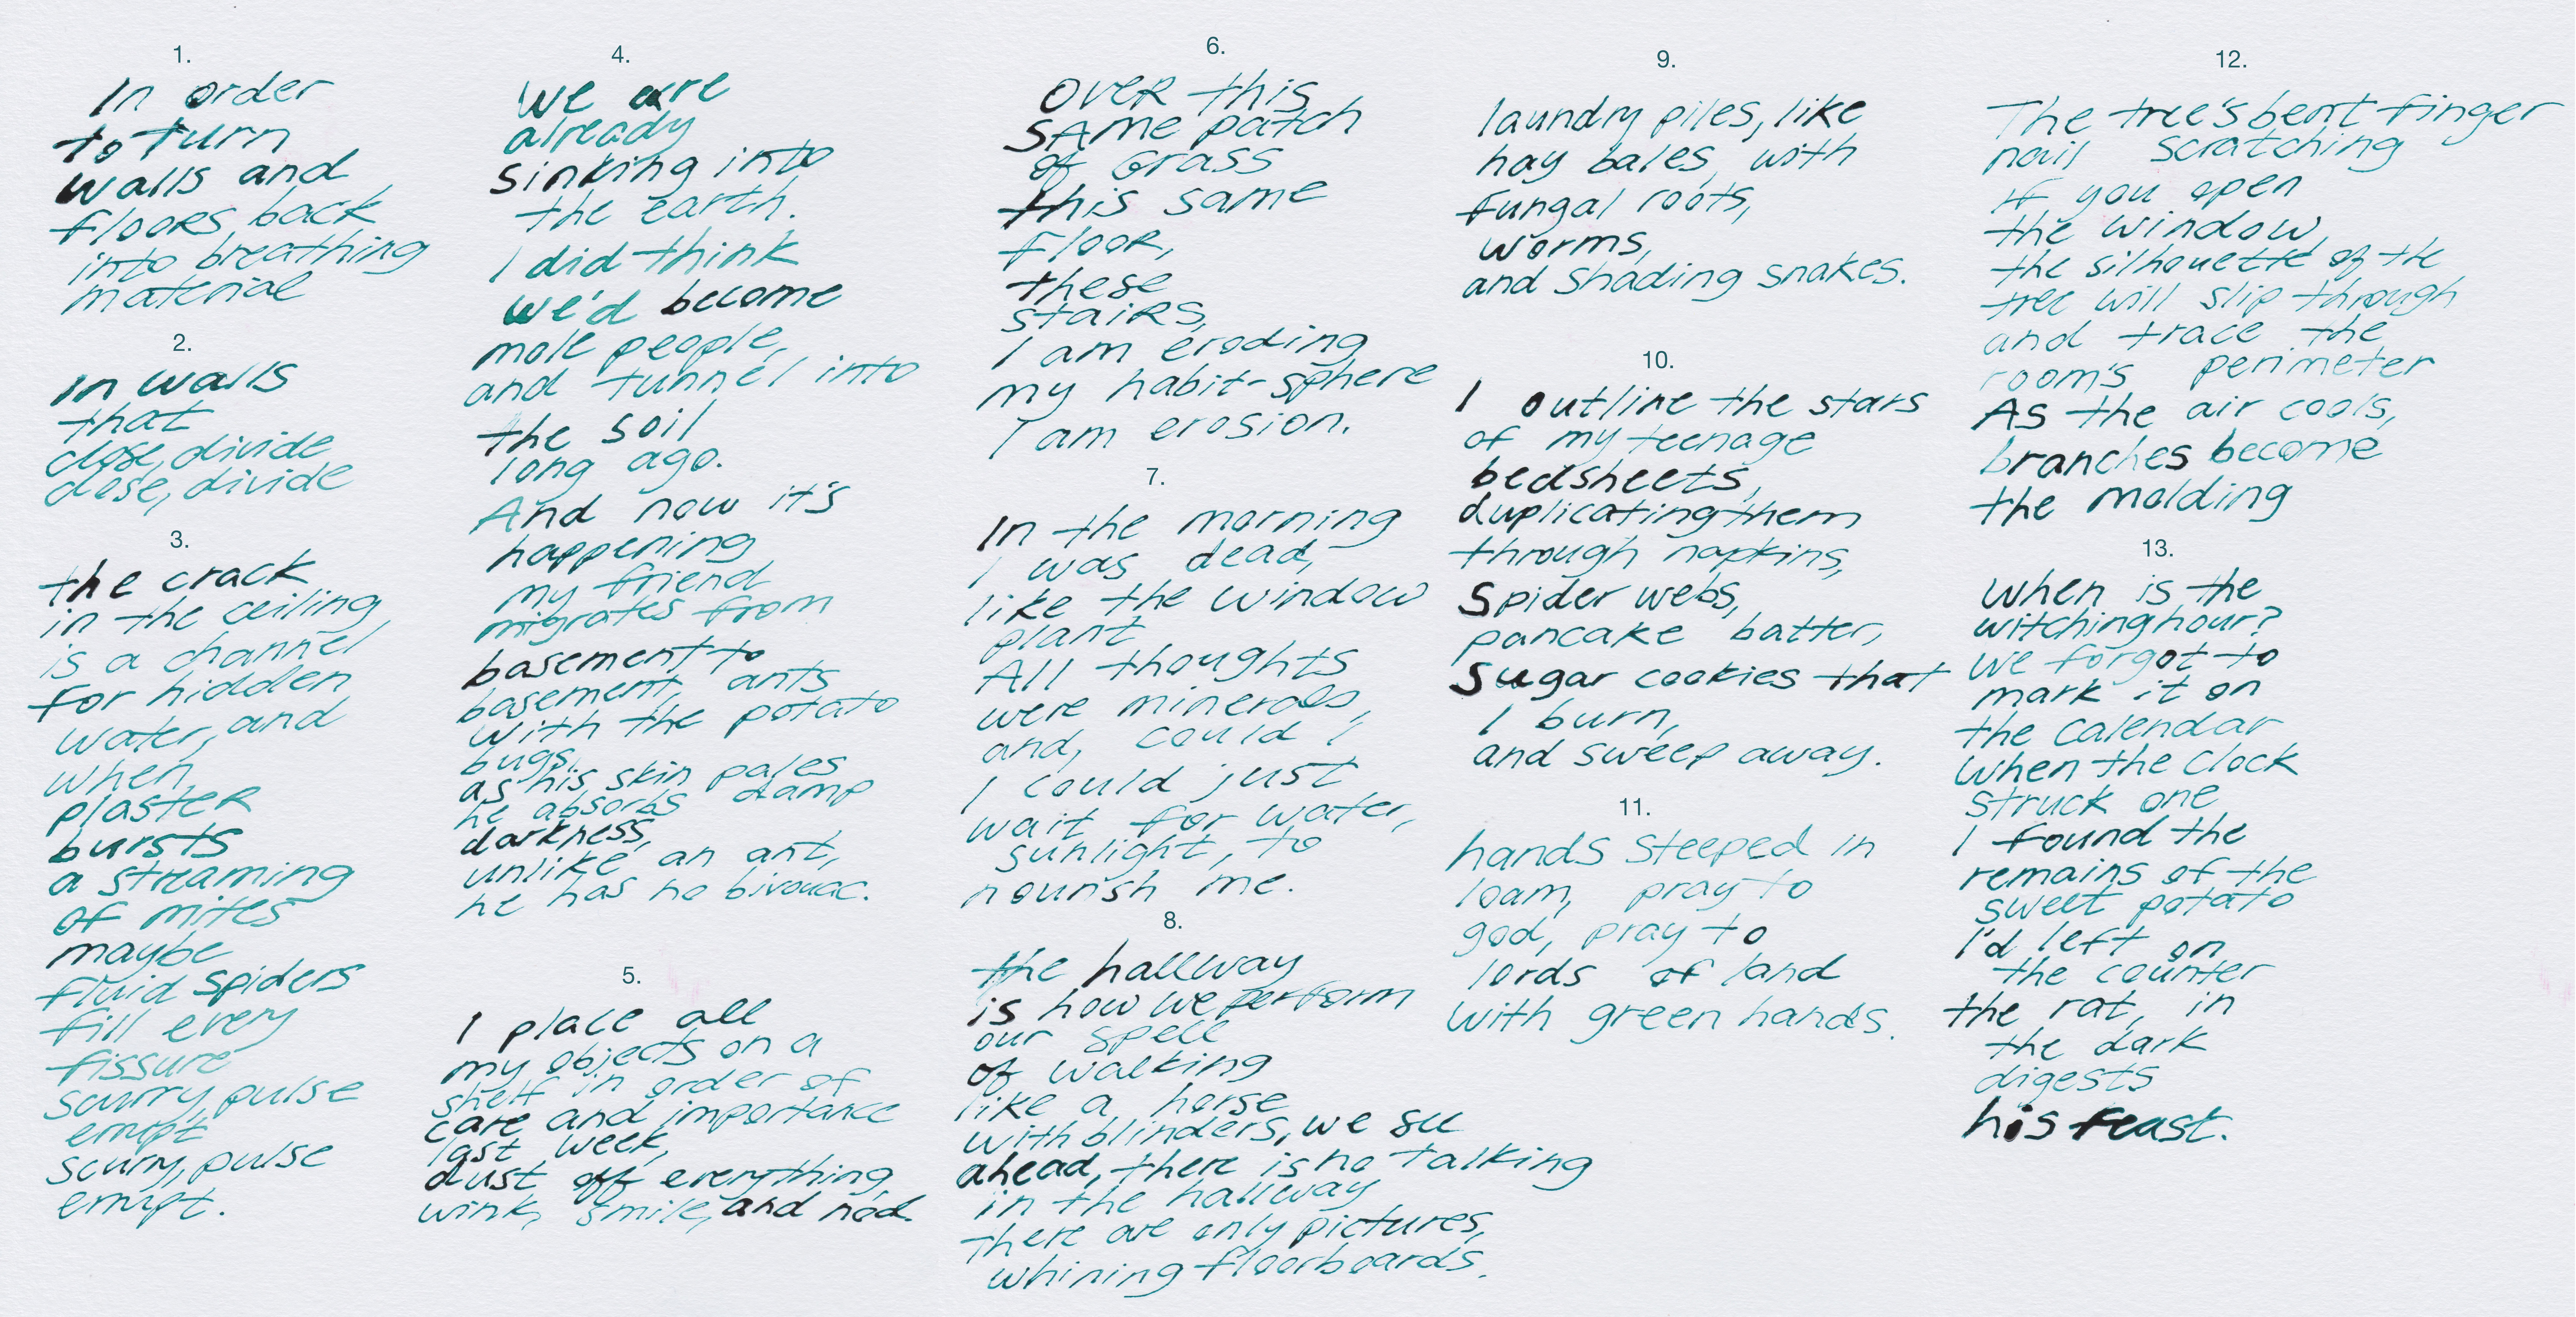 1.
In order
to turn
walls and
floors back
into breathing
material
2.
In walls
that
close, divide
close, divide
3.
the crack
in the ceiling
is a channel
for hidden
water, and
when
plaster
bursts
a streaming
of mites
maybe
fluid spiders
fill every
fissure
scurry, pulse
erupt
scurry, pulse
erupt.
4.
We are
already
sinking into
the earth.
I did think
we'd become
mole people,
and tunnel into
the soil
long ago.
And now it's
happening
my friend
migrates from
basement to
basement, ants
with the potato
bugs,
as his skin pales
he absorbs damp
darkness,
unlike an ant,
he has no bivouac.
5.
I place all
my objects on a
shelf in order of
care and importance
last week,
dust off everything,
wink, smile, and nod.
6.
Over this
same patch
of Grass
this same
floor,
these
stairs,
I am eroding
my habit-sphere
I am erosion.
7.
In the morning
I was dead,
like the window
plant
All thoughts
were minerals,
and, could I,
I could just
wait for water,
sunlight, to
nourish me.
8.
the hallway
is how we perform
our spell
of walking
like a horse
with blinders, we see
ahead, there is no talking
in the hallway
there are only pictures,
whining floorboards.
9.
laundry piles, like
hay bales, with
fungal roots,
worms,
and shading snakes.
10.
I outline the stars
of my teenage
bedsheets,
duplicating them
through napkins,
Spider webs,
pancake batter,
Sugar cookies that
I burn,
and sweep away.
11.
hands steeped in
loam, pray to
god, pray to
lords of land
with green hands.
12.
The tree's bent finger
nail scratching
If you open
the window,
the silhouette of the
tree will slip through
and trace the
room's perimeter
As the air cools,
branches become
the molding
13.
When is the
witching hour?
we forgot to
mark it on
the calendar
When the clock
struck one
I found the
remains of the
sweet potato
I'd left on
the counter
the rat, in
the dark
digests
his feast.